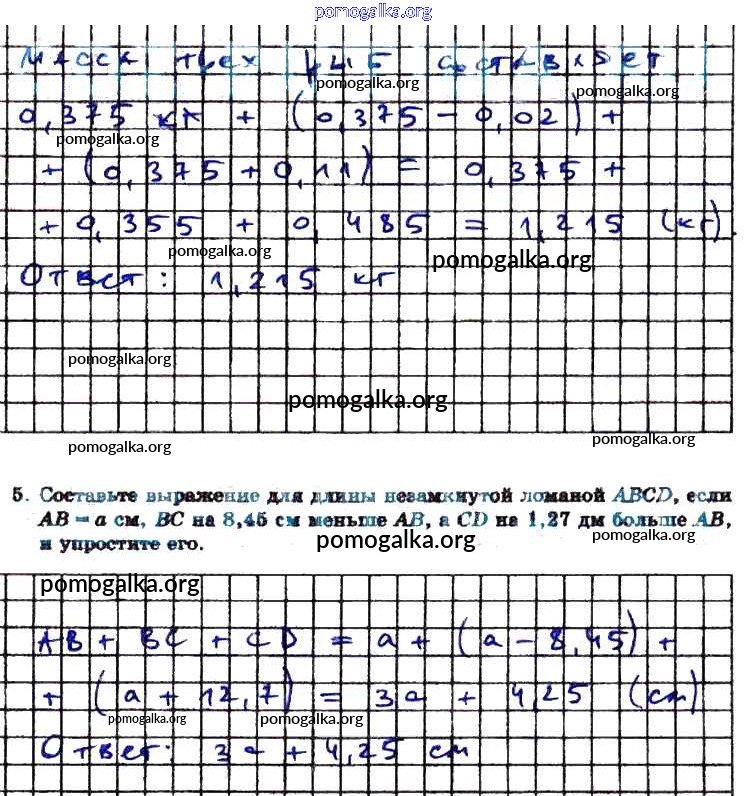 pomogalka.org
Масса трех чаш составляет
pomogalka.org
pomogalka.org
0,375 кг + (0,375 - 0,02) +
pomogalka.org
+ (0,375 + 0,11) = 0,375 +
+ 0,355 + 0,485 = 1,215 (кг).
pomogalka.org
pomogalka.org
Ответ: 1,215 кг
pomogalka.org
pomogalka.org
pomogalka.org
pomogalka.org
5. Составьте выражение для длины незамкнутой ломаной ABCD, если
AB = a см, BC на 8,45 см меньше AB, а CD на 1,27 дм больше AB,
и упростите его.
pomogalka.org
pomogalka.org
pomogalka.org
AB + BC + CD = a + (a - 8,45) +
+ (a + 12,7) = 3a + 4,25 (см)
pomogalka.org
pomogalka.org
Ответ: 3a + 4,25 см